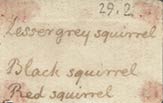 29.2.
Lesser grey squirrel
Black squirrel
Red squirrel